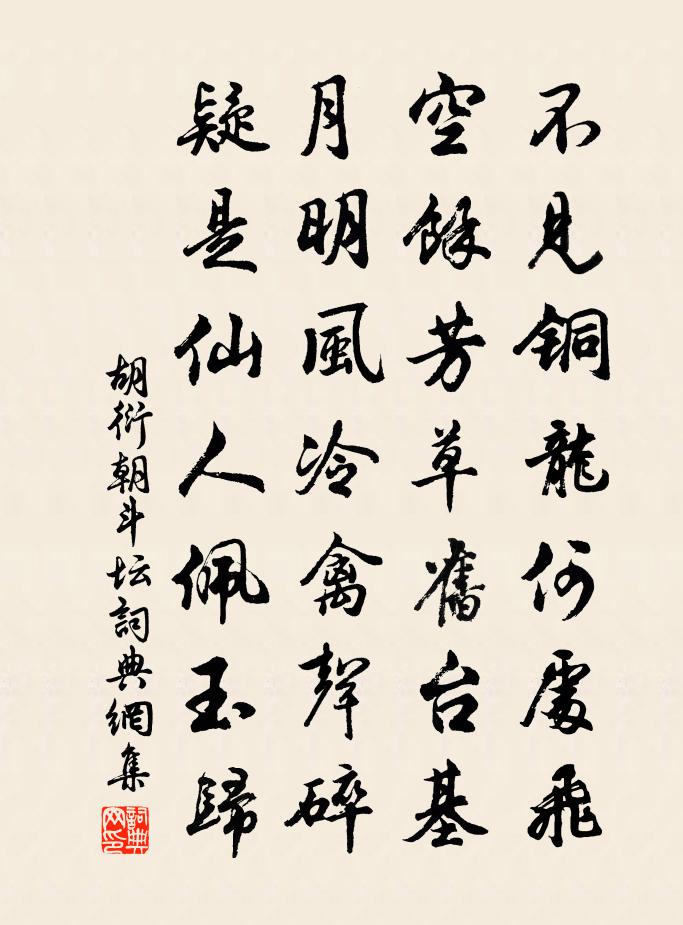 不見銅龍何處飛
空餘芳草舊台基
月明風冷禽聲碎
疑是仙人佩玉歸
胡衍朝斗坛詞典網集
詞典网印